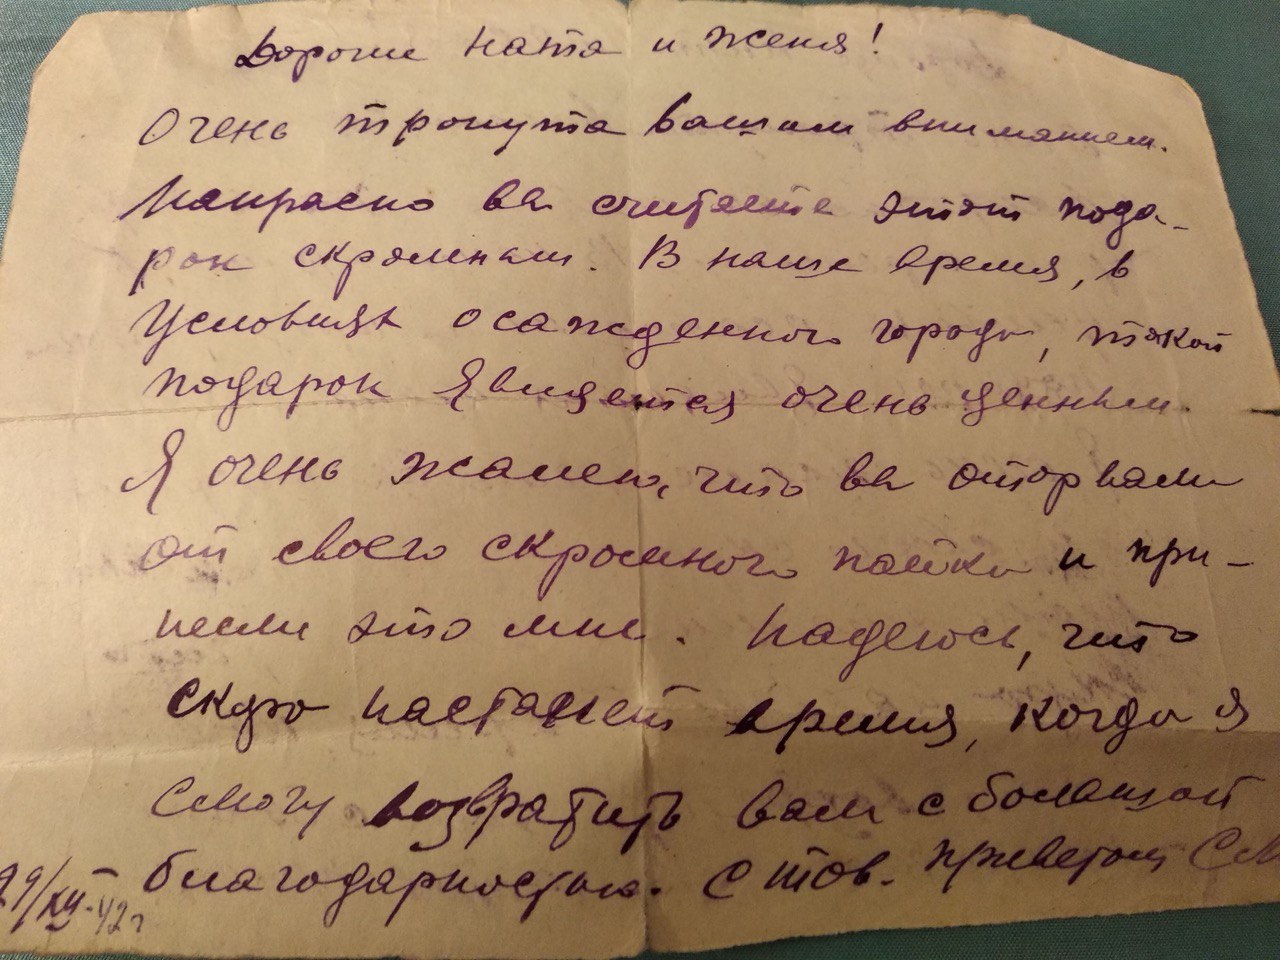 Дорогие Ната и Женя!
Очень тронута вашим вниманием.
Напрасно вы считаете этот пода-
рок скромным. В наше время, в
условиях осажденного города, такой
подарок является очень ценным.
Я очень жалею, что вы оторвали
от своего скромного пайка и при-
несли это мне. Надеюсь, что
скоро настанет время, когда я
смогу возвратить вам с большой
благодарностью. С тов. приветом
29/XII-42г